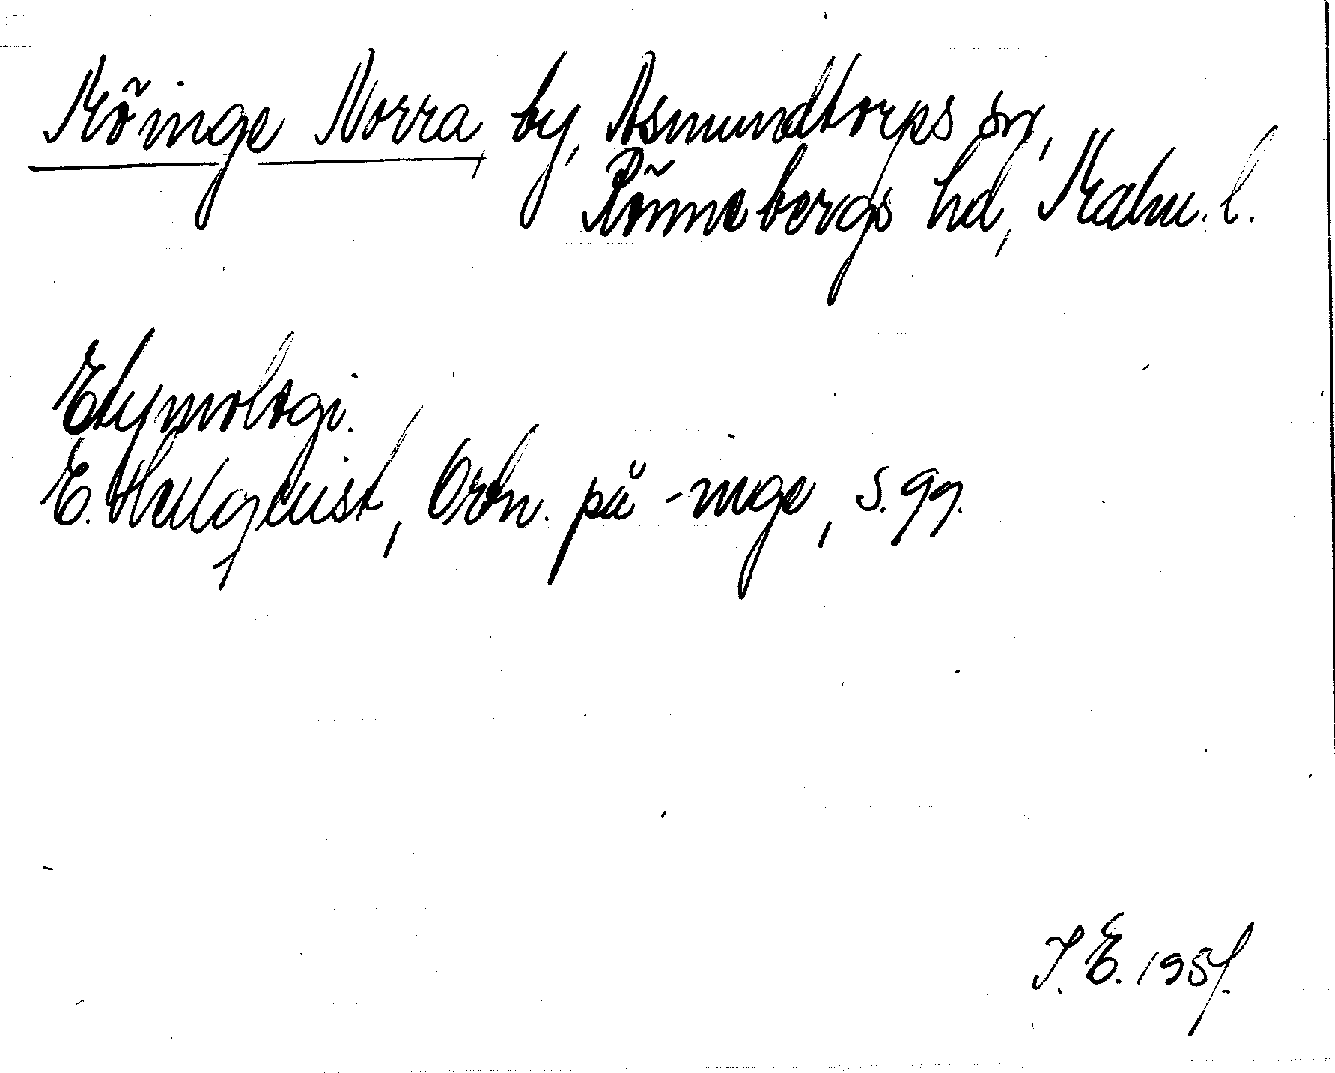 Möinge Norra, by, Asmundtorps sn,
Rönnebergs hd, Malm. l.
Etymologi.
E. Hellquist, Ortn. på -inge, s. 99.
I. E. 1957.